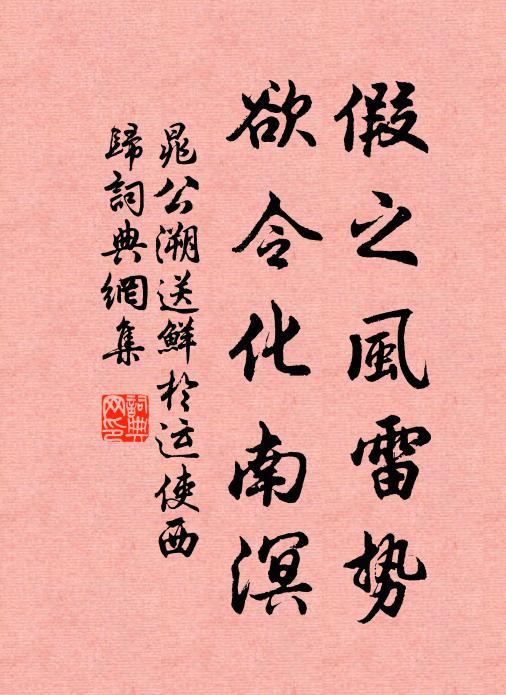 假之風雷勢
欲令化南溟
晁公溯送鮮於运使西
歸詞典網集
詞典
网印